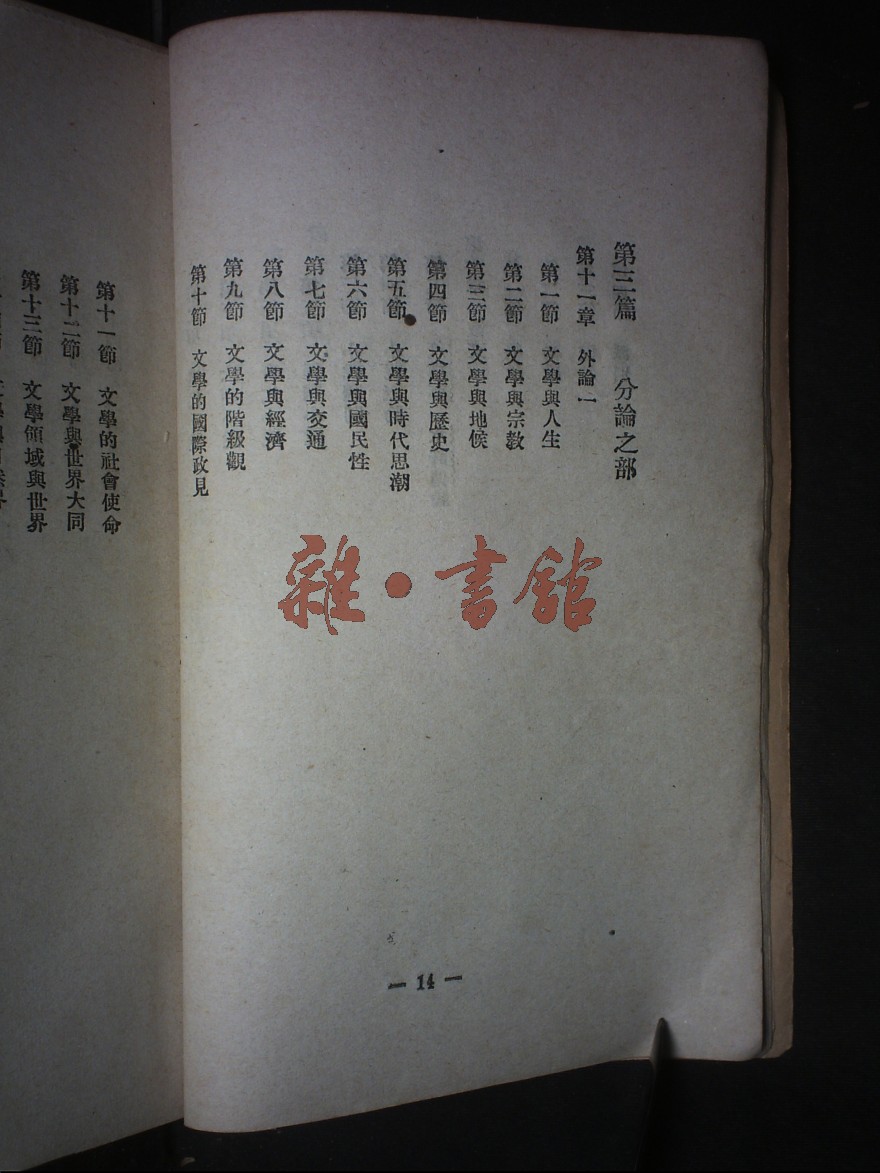 第三篇　分論之部
第十一章　外論一
第一節　文學與人生
第二節　文學與宗教
第三節　文學與地候
第四節　文學與歷史
第五節　文學與時代思潮
第六節　文學與國民性
第七節　文學與交通
第八節　文學與經濟
第九節　文學的階級觀
第十節　文學的國際政見
— 14 —
第十一節　文學的社會使命
第十二節　文學與世界大同
第十三節　文學領域與世界
雜·書館